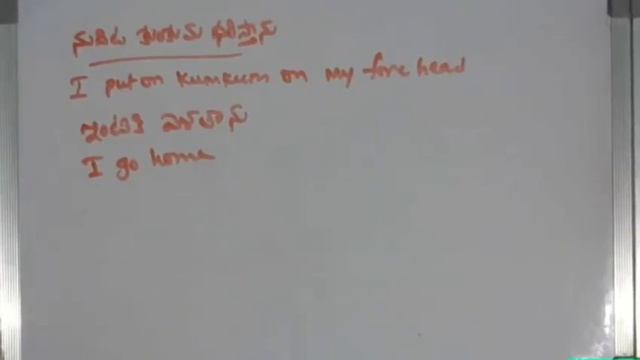 నుదిట కుంకుమ ధరిస్తాను
I put on kumkum on my fore head
ఇంటికి వెళతాను
I go home